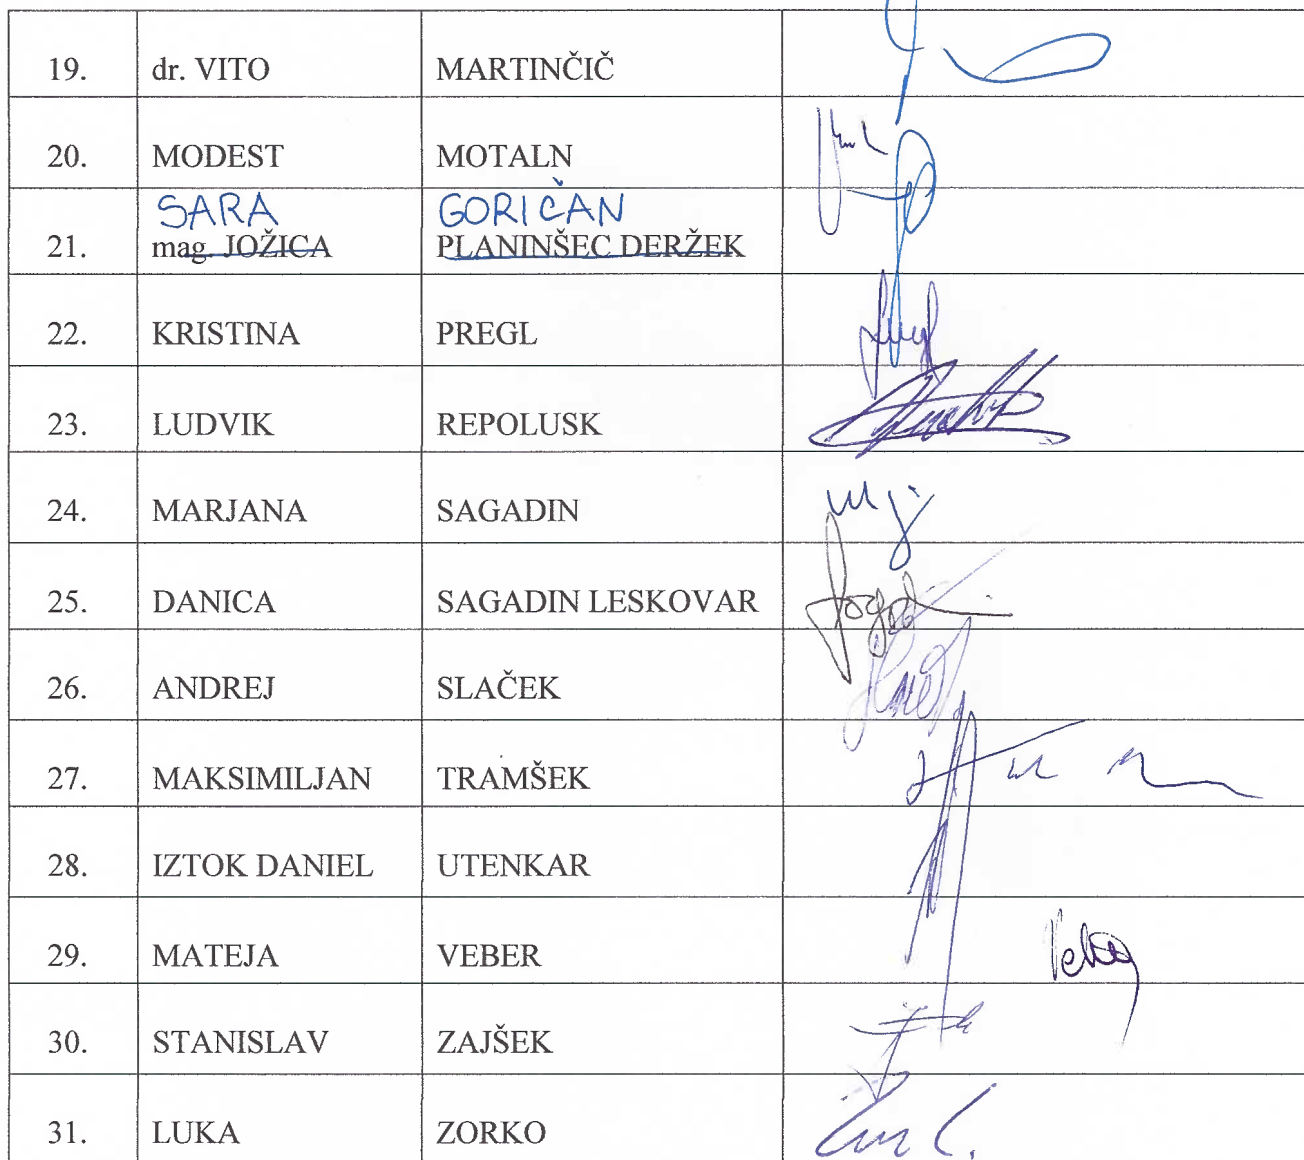 19. dr. VITO MARTINČIČ
20. MODEST MOTALN
SARA GORIČAN
21. mag. JOŽICA PLANINŠEC DERŽEK
22. KRISTINA PREGL
23. LUDVIK REPOLUSK
24. MARJANA SAGADIN
25. DANICA SAGADIN LESKOVAR
26. ANDREJ SLAČEK
27. MAKSIMILJAN TRAMŠEK
28. IZTOK DANIEL UTENKAR
29. MATEJA VEBER
30. STANISLAV ZAJŠEK
31. LUKA ZORKO